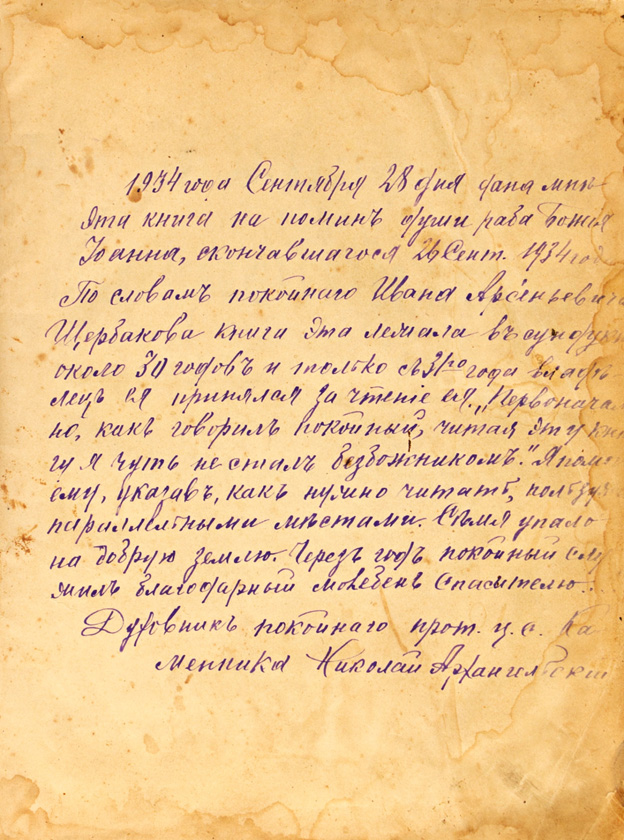 1934 года Сентября 28 дня дана мнѣ
эта книга на поминъ души раба Божія
Іоанна, скончавшагося 26 Сент. 1934 год
По словамъ покойнаго Ивана Арсеньевича
Щербакова книга эта лежала въ сундукѣ
около 30 годовъ и только съ 31го года владѣ
лецъ ея принялся за чтеніе ея. „Первонача
но, какъ говорилъ покойный, читая эту кни
гу я чуть не сталъ безбожникомъ." Я помог
ему, указавъ, какъ нужно читать, пользуя
параллельными мѣстами. Сѣмя упало
на добрую землю. Черезъ годъ покойный слу
жилъ благодарный молебенъ Спасителю.
Духовникъ покойнаго прот. ц. с. Ка
менника Николай Архангельскій